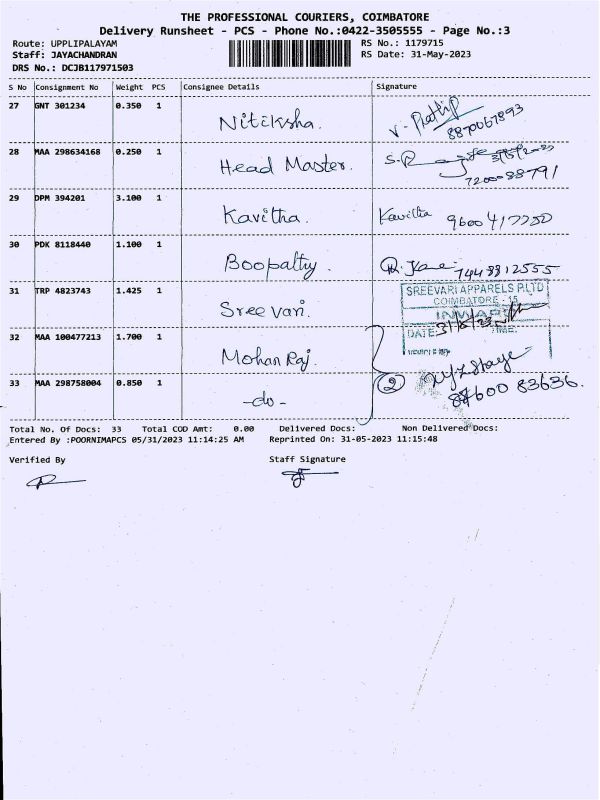 THE PROFESSIONAL COURIERS, COIMBATORE
Delivery Runsheet - PCS - Phone No.:0422-3505555 - Page No.:3
Route: UPPLIPALAYAM RS No.: 1179715
Staff: JAYACHANDRAN RS Date: 31-May-2023
DRS No.: DCJB117971503
S No Consignment No Weight PCS Consignee Details Signature
27 GNT 301234 0.350 1 Nitiksha. V. 8870067893
28 MAA 298634168 0.250 1 Head Master. 31/5/2023
29 DPM 394201 3.100 1 Kavitha. Kavitha
30 PDK 8118440 1.100 1 Boopalty.
31 TRP 4823743 1.425 1 Sree vari. SREEVARI APPARELS P.LTD
COIMBATORE - 15
INWARD
DATE: 31/5/23 TIME:
32 MAA 100477213 1.700 1 Mohan Raj.
33 MAA 298758004 0.850 1 -do- 2 83636.
Total No. Of Docs: 33 Total COD Amt: 0.00 Delivered Docs: Non Delivered Docs:
Entered By :POORNIMAPCS 05/31/2023 11:14:25 AM Reprinted On: 31-05-2023 11:15:48
Verified By Staff Signature